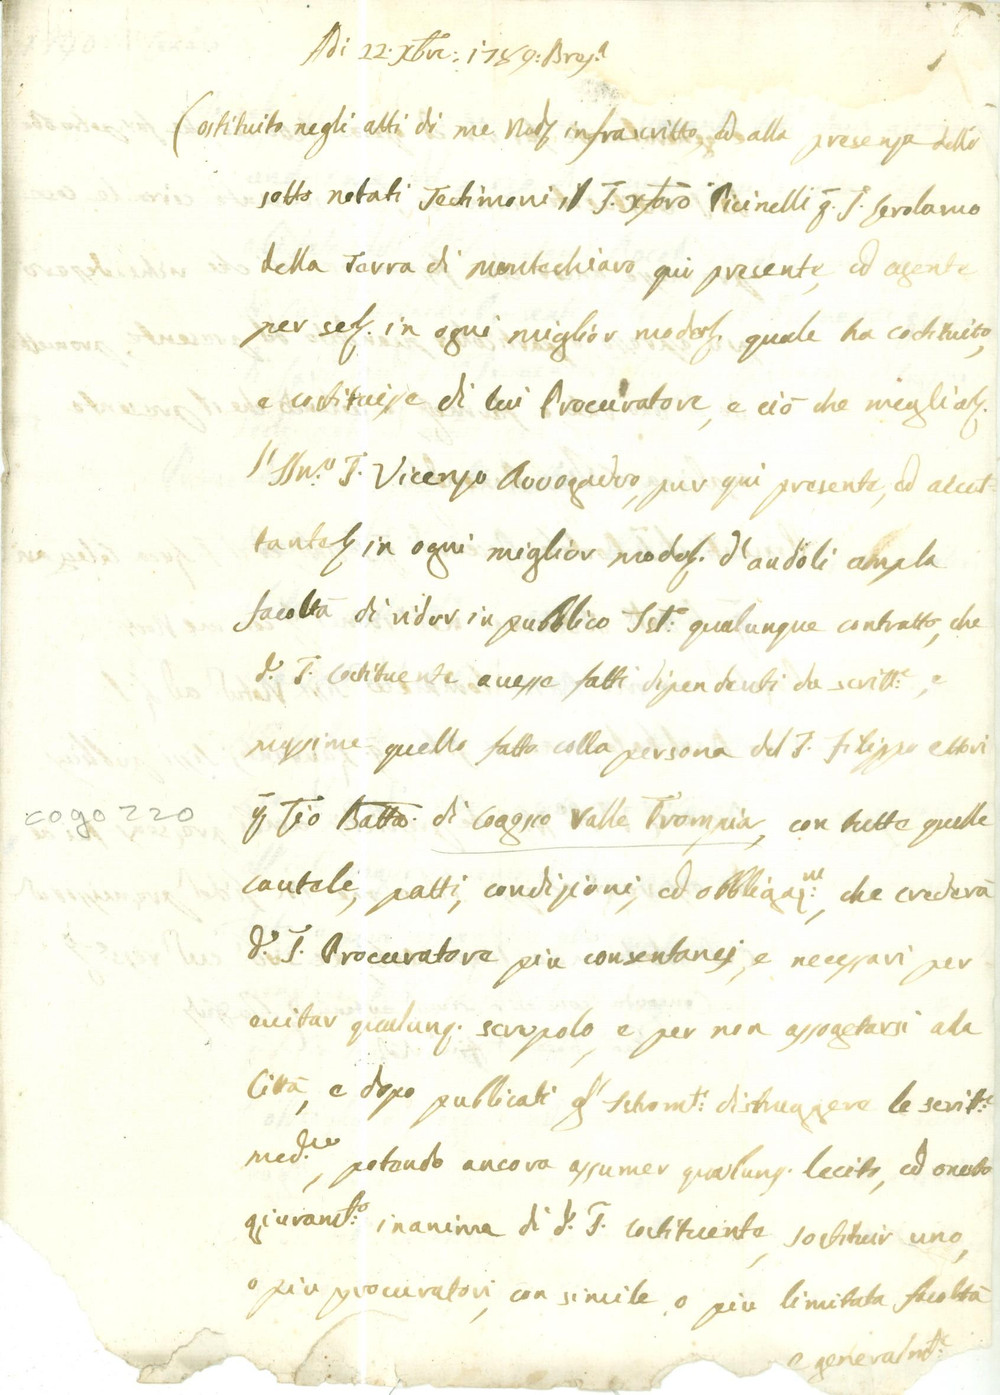 Adi 22. Xbre. 1789. Bresa
1
Costituito negli atti di me Nodo infrascritto, ed alla presenza delli
sotto notati Testimoni il S. Xforo Picinelli q. S. Gerolamo
della Terra di Montechiaro qui presente, ed agente
per se in ogni miglior modo quale ha costituito,
e costituisse di lui Procuratore, e ciò che meglio
l'Illmo S. Vicenzo Avvogadro, pur qui presente, ed accet-
tante in ogni miglior modo d'andoli ampla
facoltà di ridur in pubblico Ist. qualunque contratto, che
do. S. Costituente avesse fatti dipendenti da scritte, e
massime quello fatto colla persona del S. Filippo Ettori
cogozzo
q Gio Batta. di Coagzo Valle Trompia, con tutte quelle
cautele, patti, condizioni, ed obbligazne, che crederà
do. S. Procuratore piu consentanej, e necessari per
evitar qualunq. scrupolo, e per non assogetarsi ala
Città, e dopo publicati gl' Istromti distruggere le scritte
medme, potendo ancora assumer qualunq. lecito, ed onesto
giuramto in anima di do. S. Costituente, sostituir uno,
o piu procuratori, con simile o piu limitata facoltà
e generalmte